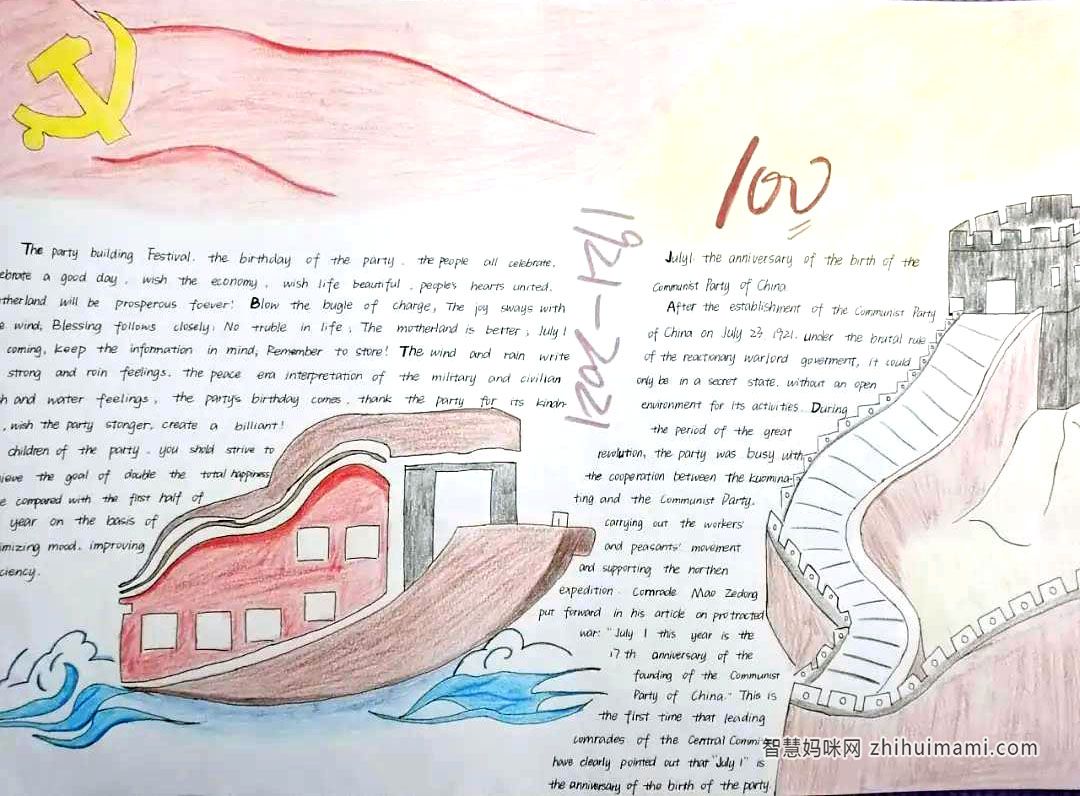 The party building Festival. the birthday of the party. the people all celebrate.
ebrate a good day. wish the economy. wish life beautiful. people's hearts united.
therland will be prosperous foever! Blow the bugle of charge, The joy sways with
e wind, Blessing follows closely; No truble in life; The motherland is better; July 1
coming, keep the information in mind, Remember to store! The wind and rain write
strong and roin feelings. the peace era interpretation of the military and civilian
h and water feelings, the party's birthday comes. thank the party for its kindn-
, wish the party stonger. create a billiant!
children of the party. you shold strive to
ieve the goal of double the total happiness
e compared with the first half of
year on the basis of
imizing mood. improving
ciency.
1921-2021
100
July1. the anniversary of the birth of the
Communist Party of China
After the establishment of the Communist Party
of China on July 23 1921. under the brutal rule
of the reactionary warlord goverment, it could
only be in a secret state. without an open
environment for its activities...During
the period of the great
revolution, the party was busy with
the cooperation between the kuomina-
ting and the Communist Party.
carrying out the workers'
and peasants' movement
and supporting the northen
expedition. Comrade Mao Zedong
put forward in his article on protracted
war: "July 1 this year is the
17 th anniversary of the
founding of the Communist
Party of China." This is
the first time that leading
comrades of the Central Commi
have clearly pointed out that "July 1" is
the anniversary of the birth of the party.
智慧妈咪网 zhihuimami.com